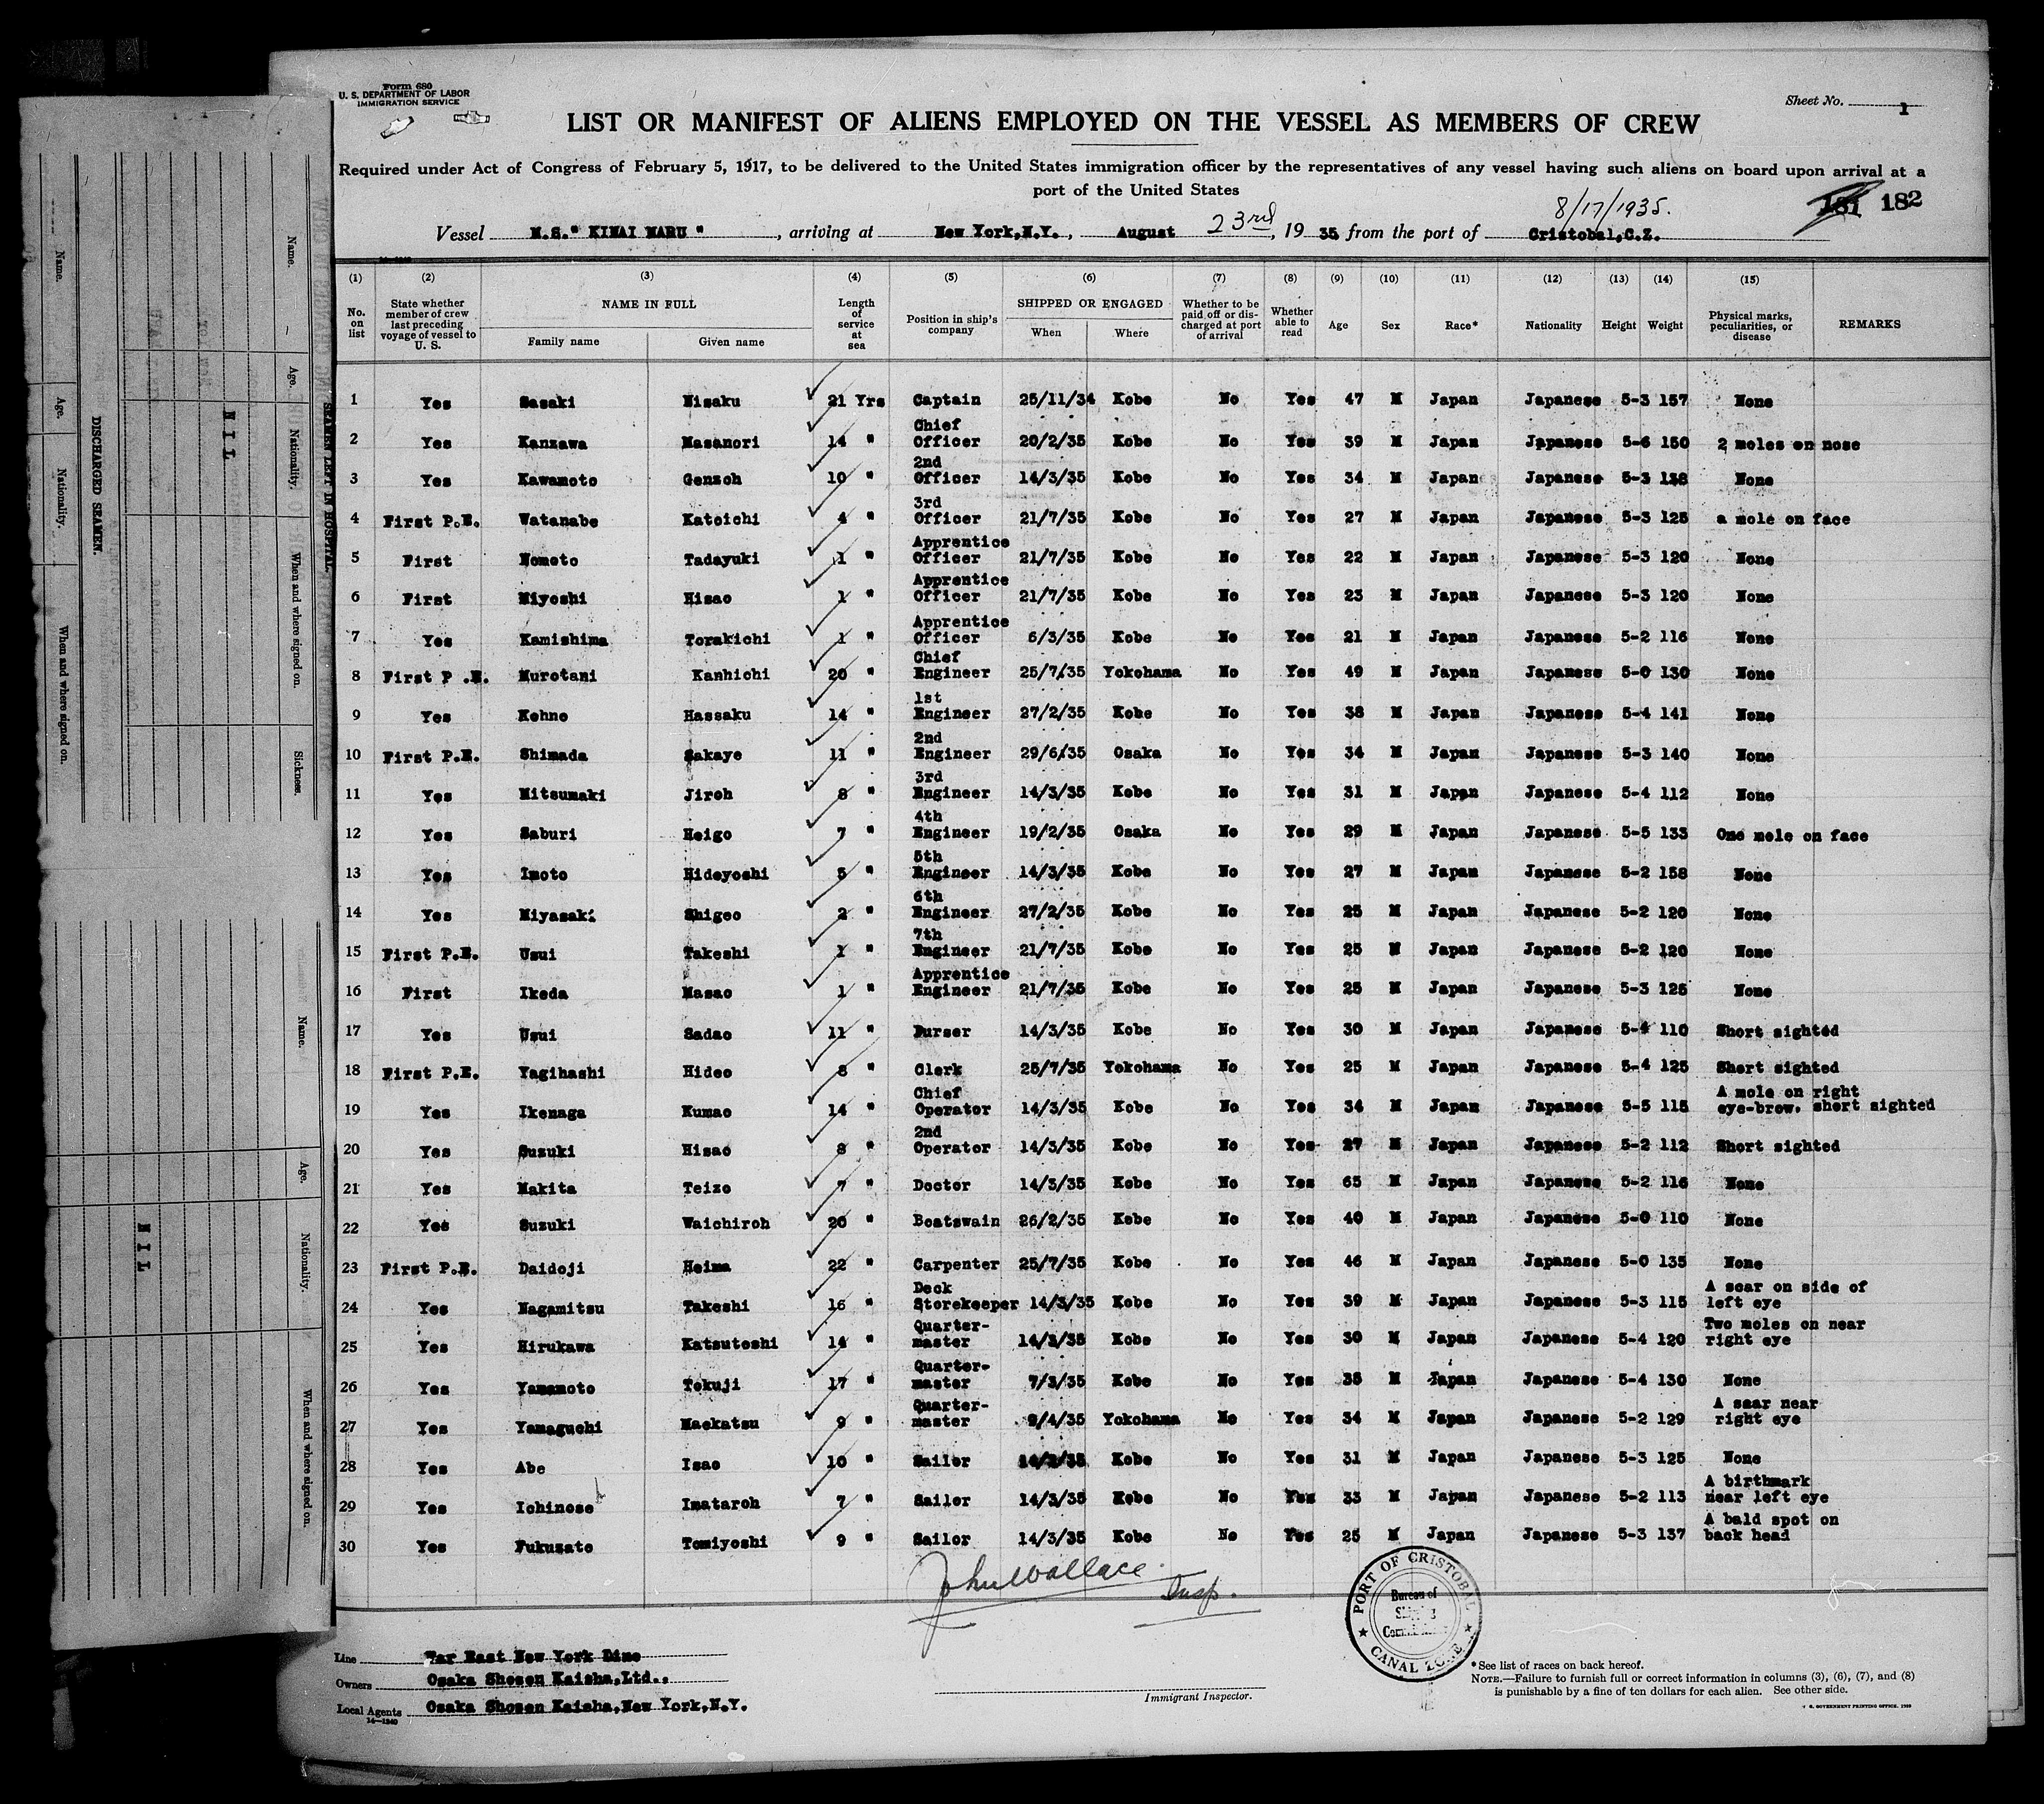 Form 680
U. S. DEPARTMENT OF LABOR
IMMIGRATION SERVICE
Sheet No. 1
LIST OR MANIFEST OF ALIENS EMPLOYED ON THE VESSEL AS MEMBERS OF CREW
Required under Act of Congress of February 5, 1917, to be delivered to the United States immigration officer by the representatives of any vessel having such aliens on board upon arrival at a
port of the United States
8/17/1935.
181 182
Vessel M.S." KINAI MARU ", arriving at New York,N.Y., August 23rd, 19 35 from the port of Cristobal,C.Z.
14-1240
(1) (2) (3) (4) (5) (6) (7) (8) (9) (10) (11) (12) (13) (14) (15)
No. on list State whether member of crew last preceding voyage of vessel to U. S. NAME IN FULL Family name Given name Length of service at sea Position in ship's company SHIPPED OR ENGAGED When Where Whether to be paid off or discharged at port of arrival Whether able to read Age Sex Race* Nationality Height Weight Physical marks, peculiarities, or disease REMARKS
1 Yes Sasaki Hisaku 21 Yrs Captain 25/11/34 Kobe No Yes 47 M Japan Japanese 5-3 157 None
2 Yes Kanzawa Masanori 14 " Chief Officer 20/2/35 Kobe No Yes 39 M Japan Japanese 5-6 150 2 moles on nose
3 Yes Kawamoto Genzoh 10 " 2nd Officer 14/3/35 Kobe No Yes 34 M Japan Japanese 5-3 138 None
4 First P.E. Watanabe Kateichi 4 " 3rd Officer 21/7/35 Kobe No Yes 27 M Japan Japanese 5-3 125 a mole on face
5 First Nomoto Tadayuki 1 " Apprentice Officer 21/7/35 Kobe No Yes 22 M Japan Japanese 5-3 120 None
6 First Miyoshi Hisao 1 " Apprentice Officer 21/7/35 Kobe No Yes 23 M Japan Japanese 5-3 120 None
7 Yes Kamishima Torakichi 1 " Apprentice Officer 6/3/35 Kobe No Yes 21 M Japan Japanese 5-2 116 None
8 First P .E. Murotani Kanhichi 20 " Chief Engineer 25/7/35 Yokohama No Yes 49 M Japan Japanese 5-0 130 None
9 Yes Kohno Hassaku 14 " 1st Engineer 27/2/35 Kobe No Yes 38 M Japan Japanese 5-4 141 None
10 First P.E. Shimada Sakaye 11 " 2nd Engineer 29/6/35 Osaka No Yes 34 M Japan Japanese 5-3 140 None
11 Yes Mitsumaki Jiroh 8 " 3rd Engineer 14/3/35 Kobe No Yes 31 M Japan Japanese 5-4 112 None
12 Yes Saburi Heigo 7 " 4th Engineer 19/2/35 Osaka No Yes 29 M Japan Japanese 5-5 133 One mole on face
13 Yes Imoto Hideyoshi 5 " 5th Engineer 14/3/35 Kobe No Yes 27 M Japan Japanese 5-2 158 None
14 Yes Miyasaki Shigeo 2 " 6th Engineer 27/2/35 Kobe No Yes 25 M Japan Japanese 5-2 120 None
15 First P.E. Usui Takeshi 1 " 7th Engineer 21/7/35 Kobe No Yes 25 M Japan Japanese 5-2 120 None
16 First Ikeda Masao 1 " Apprentice Engineer 21/7/35 Kobe No Yes 25 M Japan Japanese 5-3 125 None
17 Yes Usui Sadao 11 " Purser 14/3/35 Kobe No Yes 30 M Japan Japanese 5-4 110 Short sighted
18 First P.E. Yagihashi Hideo 8 " Clerk 25/7/35 Yokohama No Yes 25 M Japan Japanese 5-4 125 Short sighted
19 Yes Ikenaga Kumao 14 " Chief Operator 14/3/35 Kobe No Yes 34 M Japan Japanese 5-5 115 A mole on right eye-brow. short sighted
20 Yes Suzuki Hisao 8 " 2nd Operator 14/3/35 Kobe No Yes 27 M Japan Japanese 5-2 112 Short sighted
21 Yes Makita Teizo 7 " Doctor 14/3/35 Kobe No Yes 65 M Japan Japanese 5-2 116 None
22 Yes Suzuki Waichiroh 20 " Boatswain 26/2/35 Kobe No Yes 40 M Japan Japanese 5-0 110 None
23 First P.E. Daidoji Heima 22 " Carpenter 25/7/35 Kobe No Yes 46 M Japan Japanese 5-0 135 None
24 Yes Nagamitsu Takeshi 16 " Deck Storekeeper 14/3/35 Kobe No Yes 39 M Japan Japanese 5-3 115 A scar on side of left eye
25 Yes Hirukawa Katsutoshi 14 " Quarter-master 14/3/35 Kobe No Yes 30 M Japan Japanese 5-4 120 Two moles on near right eye
26 Yes Yamamoto Tokuji 17 " Quarter-master 7/3/35 Kobe No Yes 38 M Japan Japanese 5-4 130 None
27 Yes Yamaguchi Maekatsu 9 " Quarter-master 9/4/35 Yokohama No Yes 34 M Japan Japanese 5-2 129 A saar near right eye
28 Yes Abe Isao 10 " Sailor 14/3/35 Kobe No Yes 31 M Japan Japanese 5-3 125 None
29 Yes Ichinose Imataroh 7 " Sailor 14/3/35 Kobe No Yes 33 M Japan Japanese 5-2 113 A birthmark near left eye
30 Yes Fukuzato Tomiyoshi 9 " Sailor 14/3/35 Kobe No Yes 25 M Japan Japanese 5-3 137 A bald spot on back head
John Wallace Insp.
PORT OF CRISTOBAL
Bureau of
Shipping
CANAL ZONE
Line Far East New York Line
Owners Osaka Shosen Kaisha,Ltd..
Local Agents Osaka Shosen Kaisha,New York,N.Y.
14-1240
Immigrant Inspector.
*See list of races on back hereof.
NOTE.—Failure to furnish full or correct information in columns (3), (6), (7), and (8)
is punishable by a fine of ten dollars for each alien. See other side.
U. S. GOVERNMENT PRINTING OFFICE. 1933
SEAMEN LEFT IN HOSPITAL.
Name. Age. Nationality. When and where signed on. Sickness.
NIL
DISCHARGED SEAMEN.
Name. Age. Nationality. When and where signed on.
Name. Age. Nationality. When and where signed on.
NIL